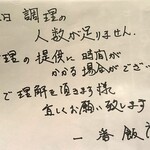 日 調理の
人数が足りません.
理の提供に時間が
かかる場合がござい
で理解を頂きます様
宜しくお願い致します
一番飯